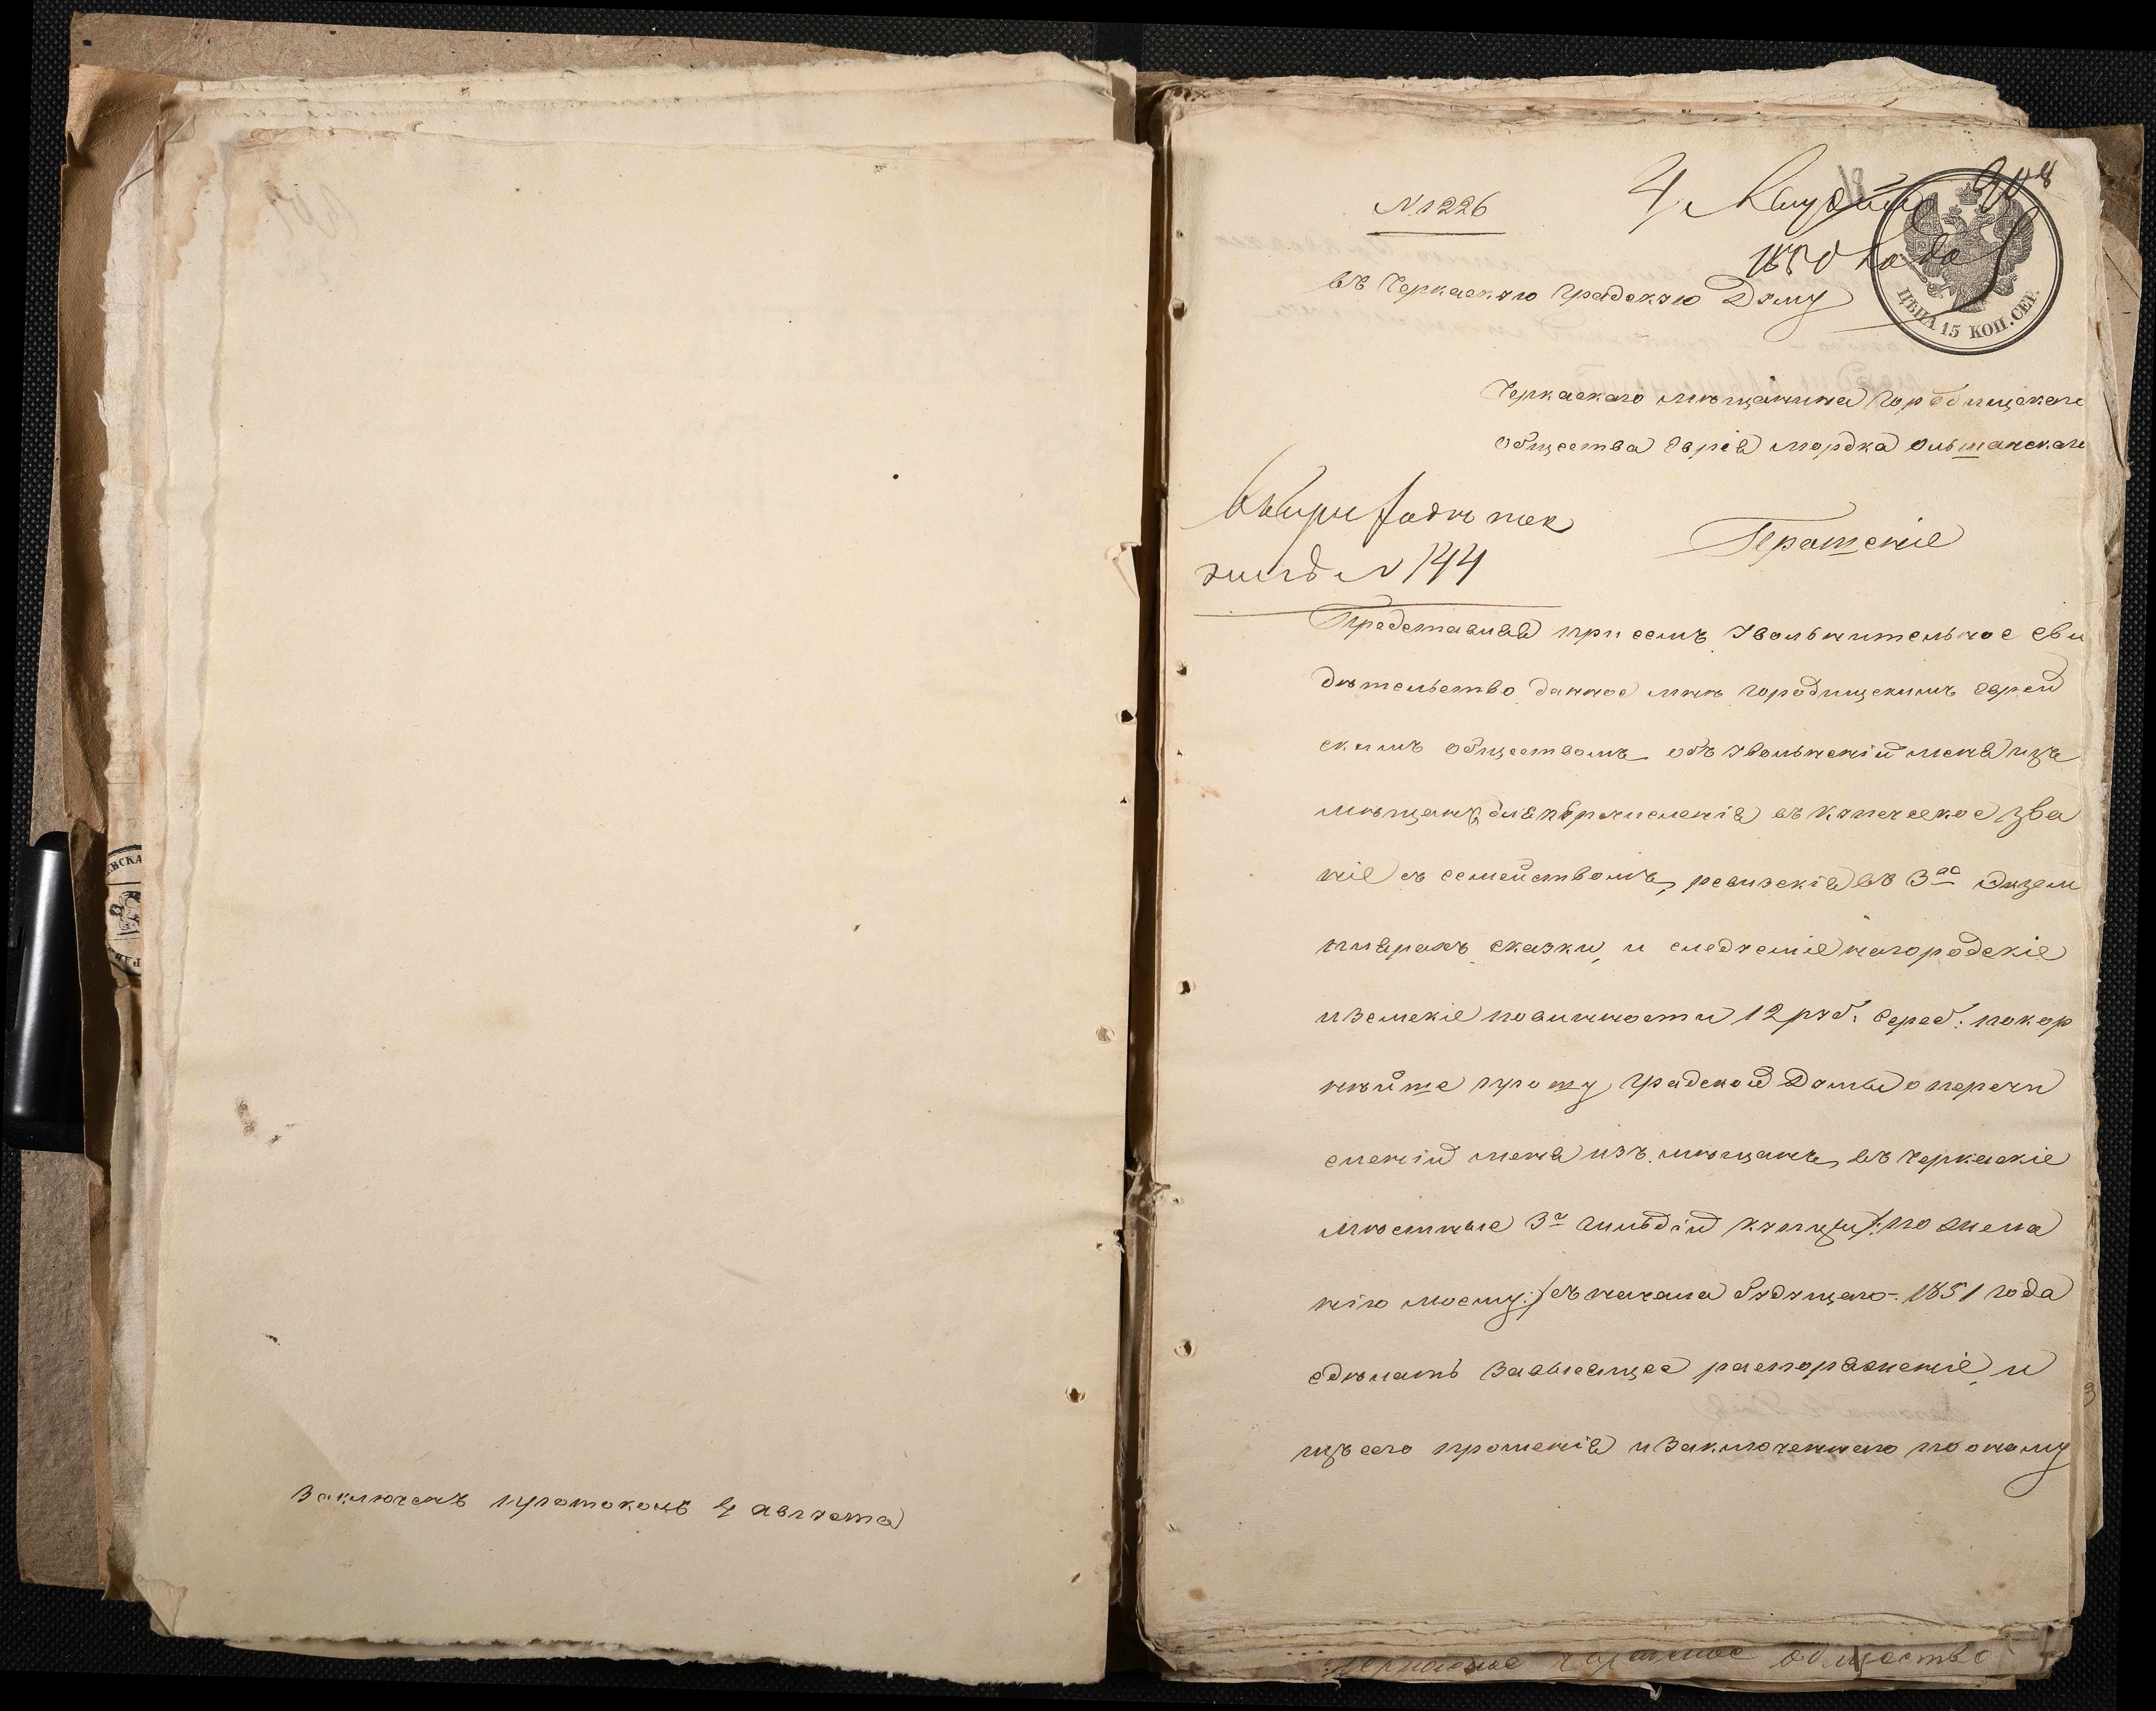 Заключенъ протоколъ 4 августа
N. 1226
4 Августа
1850 года
ЦѢНА 15 КОП. СЕР.
въ Черкаскую Градскую Думу
Черкаскаго мѣщанина Городищскаго
общества Еврея Мордка Ольшанскаго
N 144
Прошеніе
Представляя при семъ увольнительное сви
дѣтельство данное мнѣ городищскимъ еврей
скимъ обществомъ объ увольненіи меня изъ
мѣщанъ для перечисленія въ купеческое зва
ніе съ семействомъ, ревизскія въ 3хъ экзем
плярахъ сказки, и следуемые на городскіе
и земскіе повинности 12 руб. сереб: покор
нѣйше прошу, Градской Думы о перечи
сленіи меня изъ мѣщанъ, въ Черкаскіе
мѣстные 3й гильдіи купцы /: по жела
нію моему :/ съ начала будущаго 1851 года
сдѣлать зависящее распоряженіе, и
изъ сего прошенія и заключеннаго по оному
общество